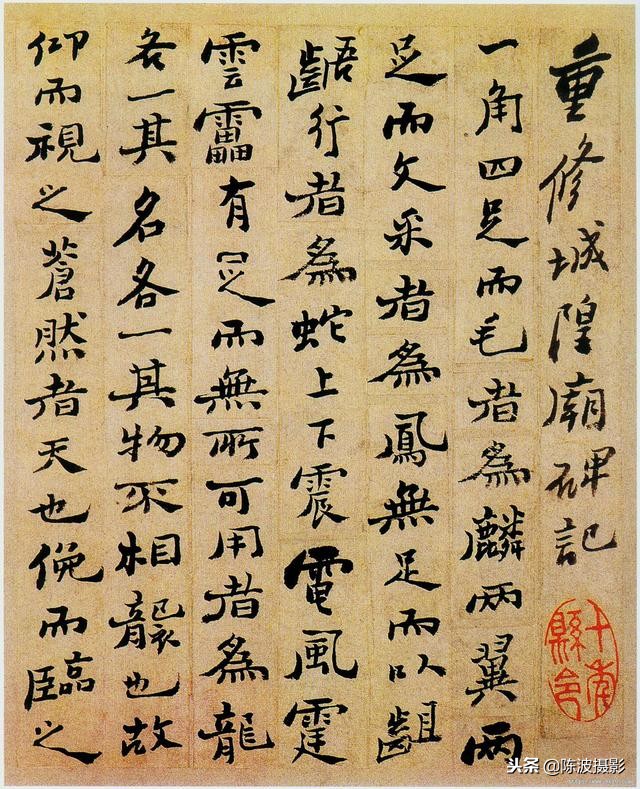 重修城隍廟碑記
一角四足而毛者為麟兩翼兩
足而文采者為鳳無足而以齟
齬行者為蛇上下震電風霆
雲靁有足而無所可用者為龍
各一其名各一其物不相襲也故
仰而視之蒼然者天也俛而臨之
十年縣令
头条 @陈波摄影